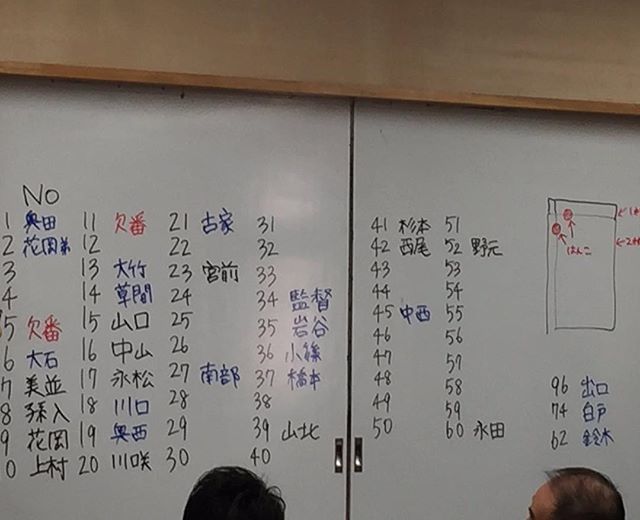 No
1 奥田 11 欠番 21 古家 31 41 杉本 51
2 花岡弟 12 22 32 42 西尾 52 野元
3 13 大竹 23 宮前 33 43 53
4 14 草間 24 34 監督 44 54
5 欠番 15 山口 25 35 岩谷 45 中西 55
6 大石 16 中山 26 36 小篠 46 56
7 美並 17 永松 27 南部 37 橋本 47 57
8 18 川口 28 38 48 58
9 花岡 19 奥西 29 39 山北 49 59
0 上村 20 川咲 30 40 50 60 永田
はんこ
96 出口
74 白戸
62 鈴木